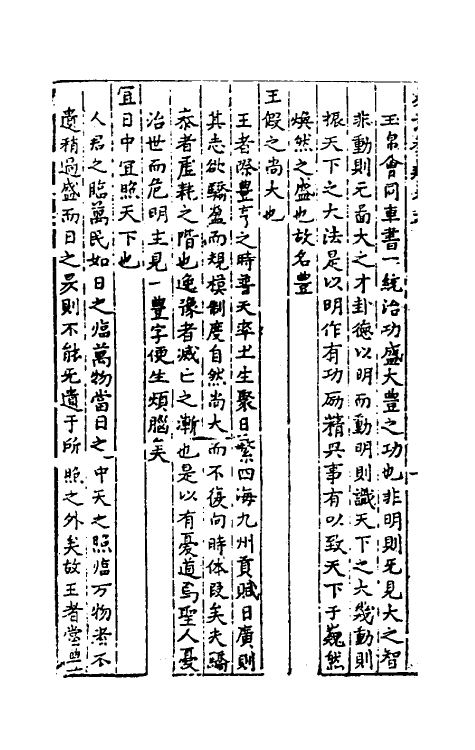 玉帛會同車書一統治功盛大豐之功也非明則无見大之智
非動則无啚大之才卦德以明而動明則識天下之大幾動則
振天下之大法是以明作有功砺精共事有以致天下于巍然
煥然之盛也故名豐
王假之尚大也
王者際豐亨之時普天率土生聚日繁四海九州貢賦日廣則
其志欲驕盈而規模制度自然尚大而不復向時体段矣夫驕
泰者虗耗之階也逸豫者滅亡之漸也是以有憂道焉聖人憂
治世而危明主見一豐字便生煩腦矣
宜日中宜照天下也
人君之臨萬民如日之临萬物當日之中天之照临万物者不
遺稍過盛而日之昃則不能无遺于所照之外矣故王者當